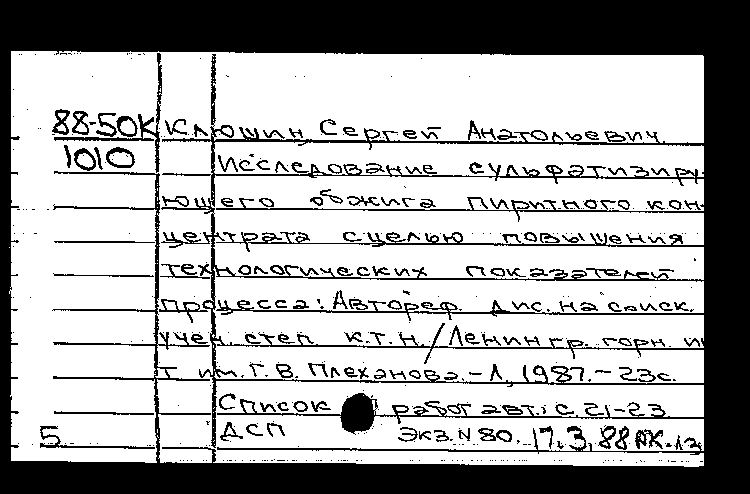 88-50К Клюшин Сергей Анатольевич.
1010 Исследование сульфатизиру-
ющего обжига пиритного кон-
центрата сцелью повышения
технологических показателей
процесса: Автореф. дис. на соиск.
учен. степ. к.т.н. / Ленингр. горн. и
т им. Г. В. Плеханова. - Л, 1987. - 23с.
Список работ авт.: с. 21-23
5 ДСП Экз. N 80. 17.3.88